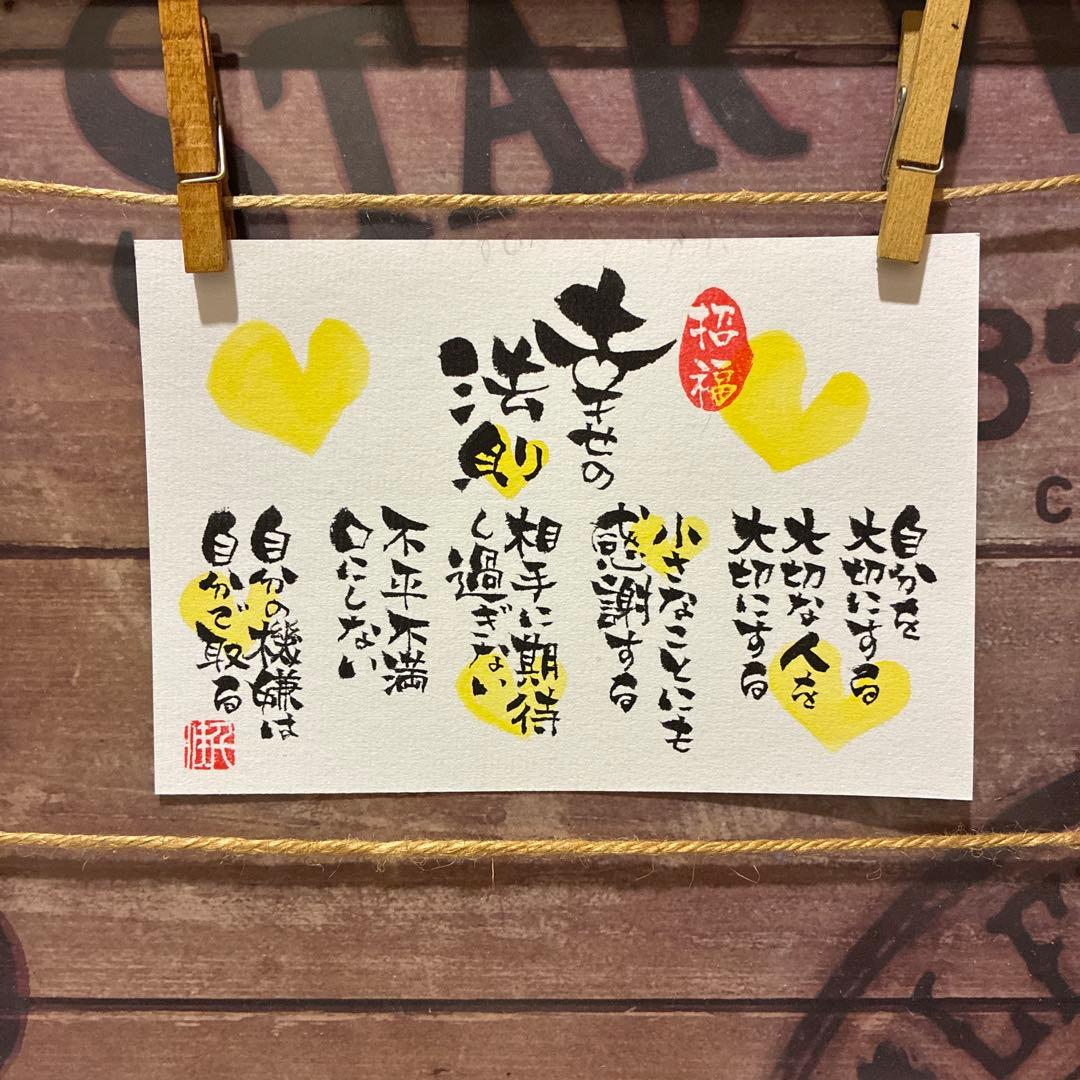 幸せの
法則
招福
自分を
大切にする
大切な人を
大切にする
小さなことにも
感謝する
相手に期待
し過ぎない
不平不満
口にしない
自分の機嫌は
自分で取る
STAR